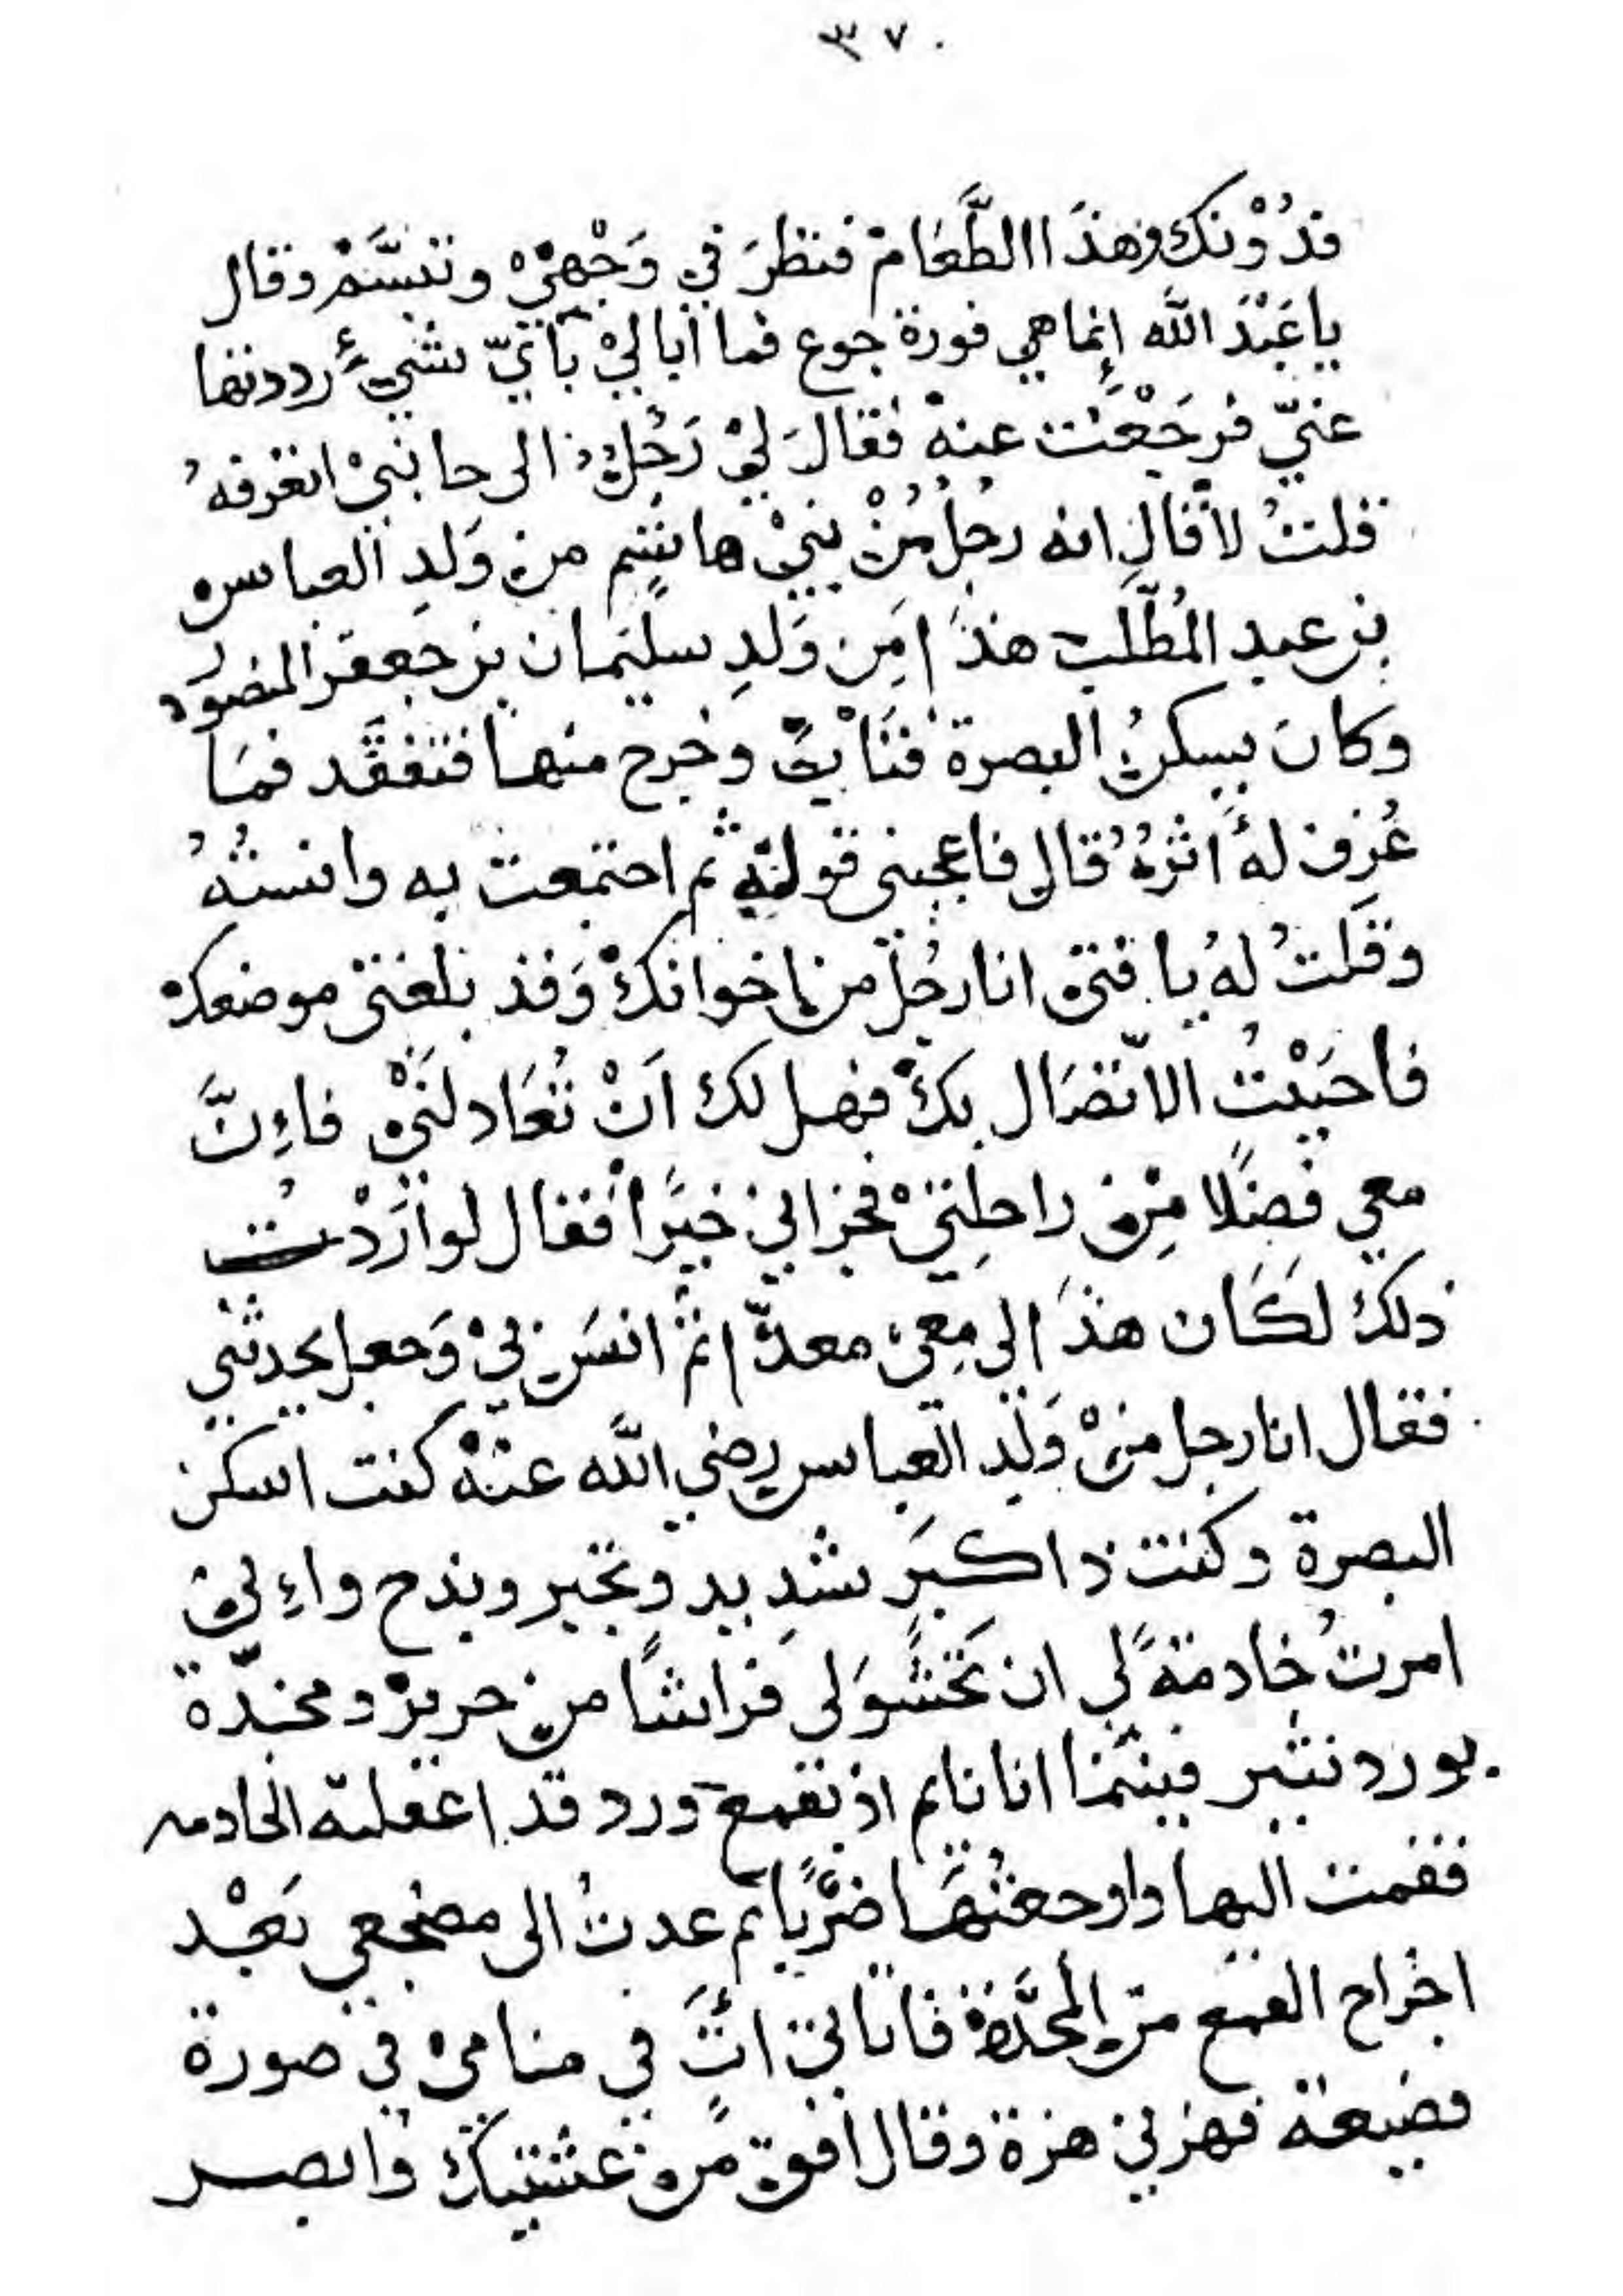 ٣٧٠
فدُوْنك وهذَا الطَّعَامْ فنظرَ في وَجْهِيْ وتبسَّمْ وقال
يا عَبْدَ اللَّه إنما هي فورة جوع فما أبا ليْ بأيّ شيءٍ رددتها
عنيّ فرجَعْت عنهْ فقالَ ليْ رَجُلْ الى جانبيْ اتعْرفهُ
فقلتُ لا قال انه رجل مِنْ بنيْ هاشم من وَلدِ العباس
بن عبد المُطَّلب هذَا مِن وَلدِ سليمان بن جعفر المنصور
وكانَ يسكنُ البصرة فتَابَ وخرج منها فتفقَّد فمَا
عُرِف لهُ اثرُهُ قال فاعجبني قولهُ ثم اجتمعت به وانستُهُ
وقلتُ لهُ يا فتى انا رجُل من اخوانكْ وَقد بلغني موضعك
فاحبَبْتُ الاتّصَال بكْ فهل لك اَنْ تُعَادلَنيْ فاءِنَّ
معي فضْلا مِنْ راحِلتيْ فجزاني خيرًا فقال لو أرَدْتُ
ذلكْ لكَان هذَا لي مِعيْ معدّا ثمّ انسَ بيْ وَجعل يحدثني
فقال انا رجل منْ وَلد العباس رضي اللَّه عنهْ كنت اسكن
البصرة وكنت ذا كبَر شدِيد وتجبر وبذح واءِني
امرتُ خادمةً لي ان تحَشوَ لي فراشًا من حرير ومخدّة
بورد نثير فبينما انا نايم اذ بقمع ورد قد اغفلته الخادمه
فقمت اليها واوجعتُها ضرْبًا ثم عدتُ الى مضجعي بَعْد
اخراج القمع من المخدَّة فاتاني اتٍ في منامي في صورة
فضيعة فهزني هزة وقال افق من غشيتكْ وابصر